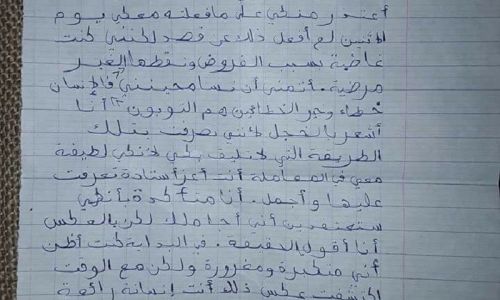 أعتذر منكي على مافعلته معكي يوم
الإثنين لم أفعل ذلك عن قصد لكنني كنت
غاضبة بسبب الفروض ونقطها الغير
مرضية. أتمنى أن تسامحينني فالإنسان
خطاء وخير الخطائين هم التوبون " أنا
أشعر بالخجل لأنني تصرفت بتلك
الطريقة التي لا تليق بكي لأنكي لطيفة
معي في المعاملة أنت أعز أستادة تعرفت
عليها وأجمل. أنا متأكدة بأنكي
ستعتقدين أني أجاملك لكن بالعكس
أنا أقول الحقيقة. في البداية كنت أظن
أني متكبرة ومغرورة ولكن مع الوقت
اكتشفت عكس ذلك أنت إنسانة رائعة